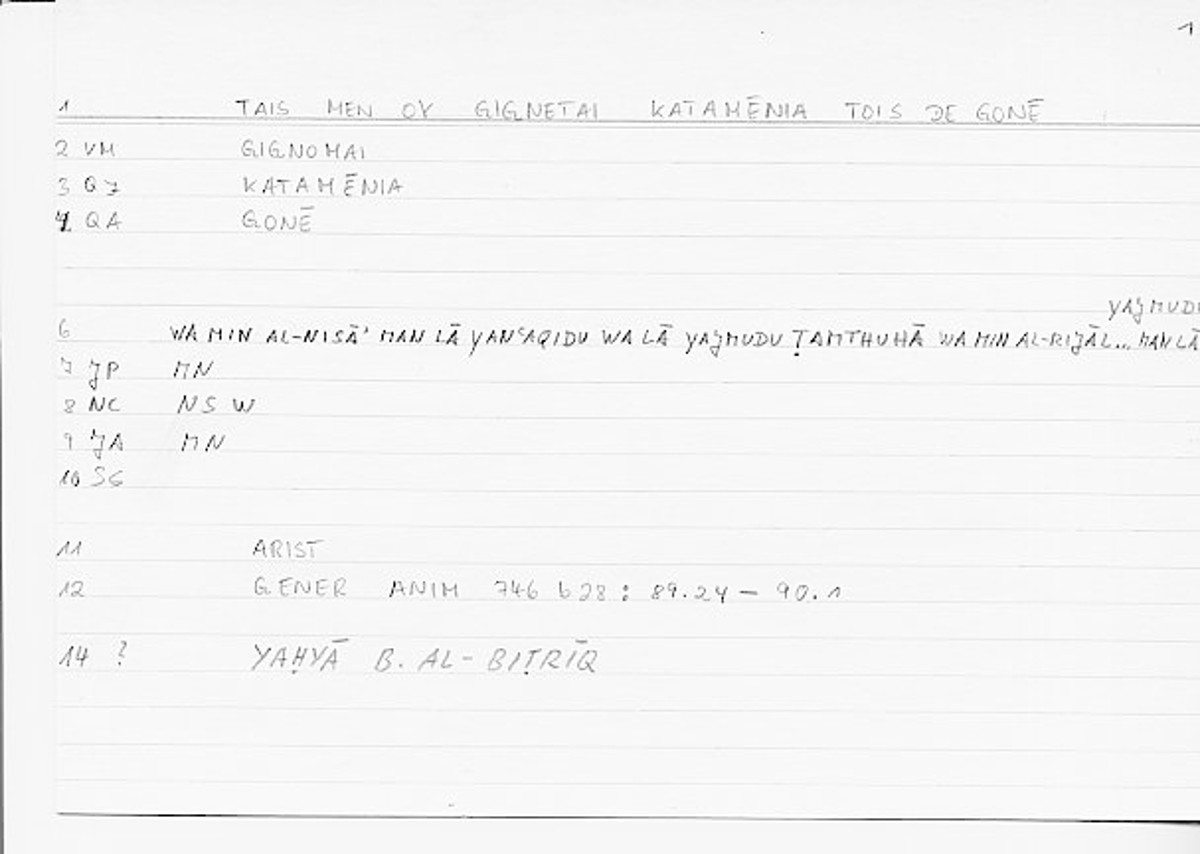 1
1 TAIS MEN OY GIGNETAI KATAMĒNIA TOIS DE GONĒ
2 VM GIGNOMAI
3 Q7 KATAMĒNIA
4 QA GONĒ
YAJMUDU
6 WA MIN AL-NISĀʾ MAN LĀ YANʿAQIDU WA LĀ YAJMUDU ṬAMTHUHĀ WA MIN AL-RIJĀL... MAN LĀ
7 JP MN
8 NC NSW
9 JA MN
10 SG
11 ARIST
12 GENER ANIM 746 b 28 : 89.24 – 90.1
14 ? YAḤYĀ B. AL-BIṬRĪQ